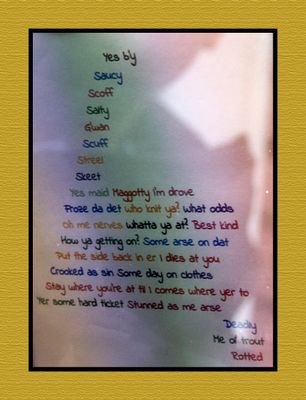 Yes b'y
Saucy
Scoff
Salty
G'wan
Scuff
Streel
Skeet
Yes maid Maggotty i'm drove
Froze da det who knit ya? what odds
Oh me nerves whatta ya at? Best kind
How ya getting on? Some arse on dat
Put the side back in er I dies at you
Crooked as sin Some day on clothes
Stay where you're at til I comes where yer to
Yer some hard ticket Stunned as me arse
Deadly
Me ol trout
Rotted